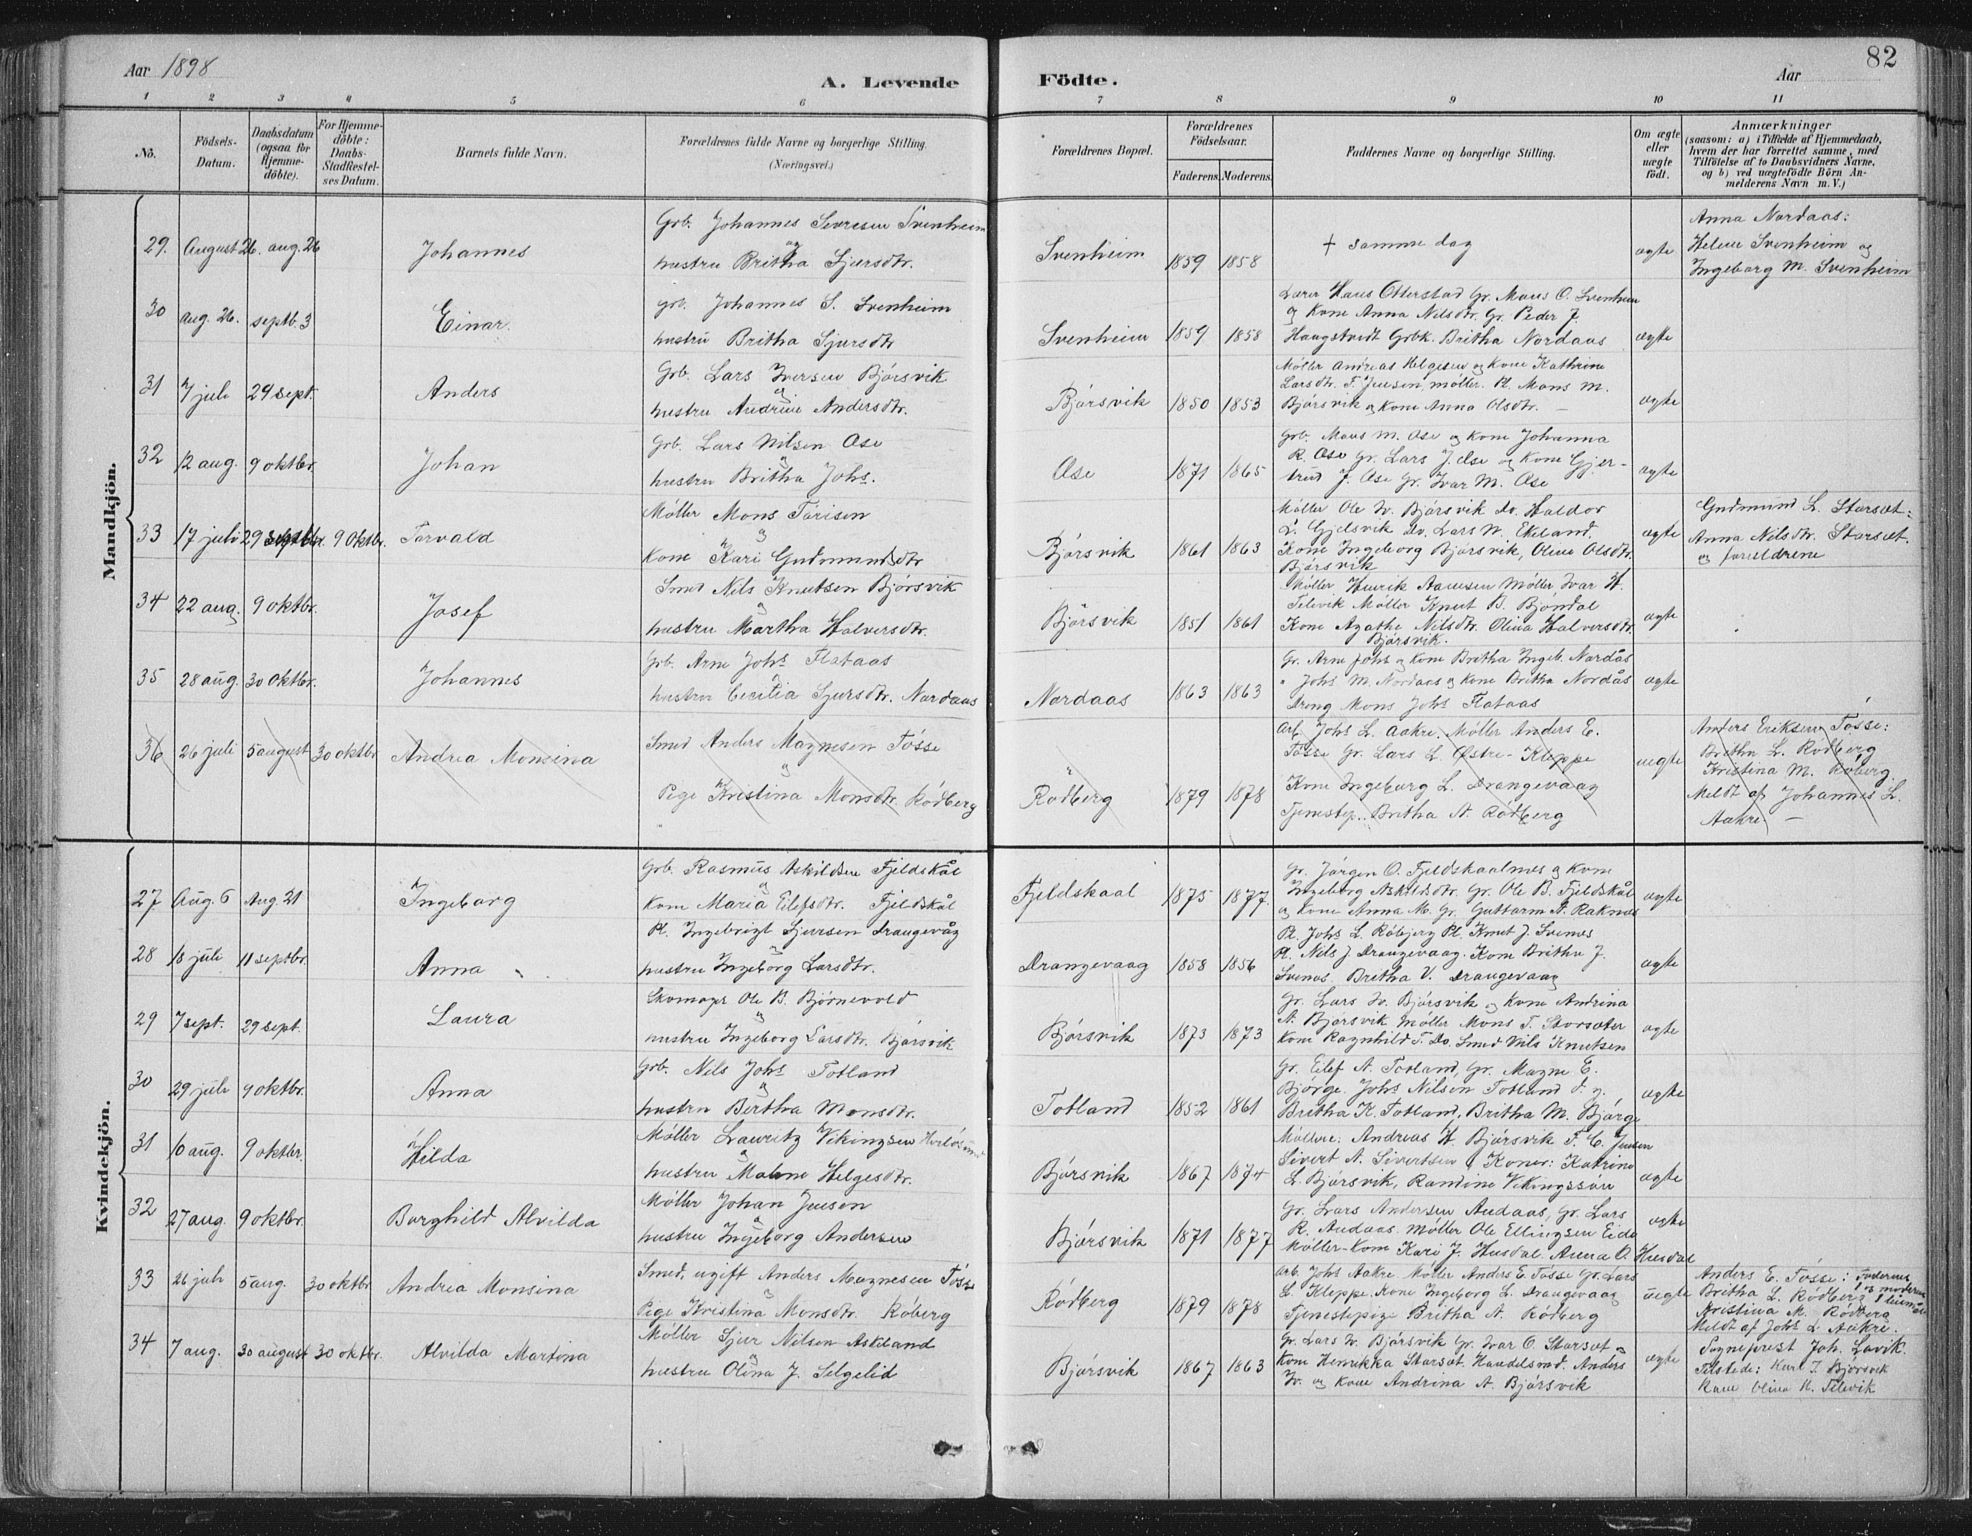 82
Aar 1898
A. Levende Födte.
Aar
1 2 3 4 5 6 7 8 9 10 11
No.
Födsels-Datum.
Daabsdatum (ogsaa for Hjemme-döbte).
For Hjemme-döbte: Daabs-Stadfæstel-ses Datum.
Barnets fulde Navn.
Forældrenes fulde Navne og borgerlige Stilling.
(Næringsvei.)
Forældrenes Bopæl.
Forældrenes Födselsaar.
Faderens. Moderens.
Faddernes Navne og borgerlige Stilling.
Om ægte eller uægte födt.
Anmærkninger
(saasom: a) i Tilfælde af Hjemmedaab,
hvem der har forrettet samme, med
Tilföielse af to Daabsvidners Navne,
og b) ved uægtefödte Börn An-
melderens Navn m. V.)
Mandkjön.
29. August 26. aug. 26 Johannes
Grb. Johannes Sivresen Svenheim
og
hustru Britha Sjursdtr.
Svenheim 1859 1858
+ samme dag
ægte
Anna Nordaas:
Helene Svenheim og
Ingeborg M. Svenheim
30 aug. 26. septb. 3 Einar.
grb. Johannes S. Svenheim
hustru Britha Sjursdtr
Svenheim 1859 1858
Lærer Hans Otterstad Gr. Mons O. Svenheim
og Kone Anna Nilsdtr. Gr. Peder J.
Haugstvedt Grbk. Britha Nordaas
ægte
31 7 juli 29 sept. Anders
Grb. Lars Iversen Bjørsvik
og
hustru Andrine Andersdtr.
Bjørsvik 1850 1853
Møller Andreas Helgesen og Kone Kathrine
Larsdtr. T. Jensen møller. Pl. Mons M.
Bjørsvik og Kone Anna Olsdtr. –
ægte
32 12 aug. 9 oktbr. Johan
Grb. Lars Nilsen Ose
og
hustru Britha Johs.
Ose 1871 1865
Grb. Mons M. Ose og Kone Johanna
R. Ose Gr. Lars J. Ose og Kone Gjer-
trud J. Ose Gr. Ivar M. Ose
ægte
33 17 juli 29 septbr. 9 Oktbr. Torvald
Møller Mons Torisen
og
Kone Kari Gudmundsdtr
Bjørsvik 1861 1863
Møller Ole W. Bjørsvik Do. Haldor
L. Gjelsvik Do. Lars N. Ekeland.
Kone Ingeborg Bjørsvik, Oline Olsdtr.
Bjørsvik
ægte
Gudmund L. Storsæt:
Anna Nilsdtr. Storsæt.
og forældrene
34 22 aug. 9 oktbr. Josef
Smed Nils Knutsen Bjørsvik
og
hustru Martha Halversdtr.
Bjørsvik 1851 1861
Møller Henrik Aamesen Møller, Ivar H.
Televik Møller Knut B. Bjøndal
Kone Agathe Nilsdtr. Olina Halversdtr.
Bjørsvik.
ægte
35 28 aug. 30 Oktbr. Johannes
Grb. Arne Johs Flataas
og
hustru Cecilia Sjursdtr. Nordaas
Nordaas 1863 1863
Gr. Arne Johs og Kone Britha Ingeb. Nordås
" Johs M. Nordaas og Kone Britha Nordås
Dreng Mons Johs Flataas
ægte
36 26 juli 5 august 30 oktbr Andrea Monsina
Smed Anders Magnesen Tøsse
og
Pige Kristina Monsdtr. Rødberg
Rødberg 1879 1878
Arb. Johs L. Aakre. Møller Anders E.
Tøsse Gr. Lars L. Østre-Kleppe
Kone Ingeborg L. Drangevaag
Tjenestep. Britha A. Rødberg
uegte
Anders Eriksen Tøsse:
Britha L. Rødberg
Kristina M. Røberg.
Meldt af Johannes L.
Aakre –
Kvindekjön.
27 Aug. 6 Aug. 21 Ingeborg
Grb. Rasmus Askildsen Fjeldskål
og
Kone Maria Eilefsdtr. Fjeldskål
Fjeldskaal 1875 1877.
Gr. Jørgen O. Fjeldskaalnes og Kone
Ingeborg Askildsdtr. Gr. Ole B. Fjeldskål
og Kone Anna M. Gr. Guttorm A. Raknes
ægte
28 18 juli 11 septbr. Anna
Pl. Ingebrigt Sjursen Drangevåg
og
hustru Ingeborg Larsdtr.
Drangevaag 1858 1856
Pl. Johs L. Røbjerg Pl. Knut J. Svenes
Pl. Nils J Drangevaag. Kone Britha J.
Svenes Bretha V. Drangevaag
ægte
29 7 sept. 29 sept. Laura
Skomager Ole B. Bjørnevold
og
hustru Ingeborg Larsdtr. Bjørsvik
Bjørsvik 1873 1873
Gr. Lars Iv. Bjørsvik og Kone Andrina
A. Bjørsvik Møller Mons T. Storsæter
Kone Ragnhild T. Do. Smed Nils Knutsen
ægte
30 29 juli 9 oktbr. Anna
Grb. Nils Johs Totland
og
hustru Bertha Monsdtr.
Totland 1852 1861
Gr. Eilef A. Totland, Gr. Magne E.
Bjørge. Johs Nilsen Totland d. y.
Britha K. Totland, Britha M. Bjørge
ægte
31 10 aug. 9 oktbr. Hilda
Møller Lauritz Vikingsen
og
hustru Malene Helgesdtr.
Bjørsvik 1867 1874
Møllere: Andreas H. Bjørsvik T. C. Jensen
Sivert A. Sivertsen Koner: Katrine
L. Bjørsvik, Randine Vikingssøn
ægte
32 27 aug. 9 oktbr. Borghild Alvilda
Møller Johan Jenson
og
hustru Ingeborg Andersen
Bjørsvik 1871 1877
Gr. Lars Andersen Audaas, Gr. Lars
R. Audaas Møller Ole Ellingsen Eide
Møller-Kone Kari J. Husdal Anna O. Husdal
ægte
33 26 juli 5 aug. 30 oktbr Andrea Monsina
Smed, ugift Anders Magnesen Tösse
og
Pige Kristina Monsdtr. Røberg
Rødberg 1879 1878
Arb. Johs Aakre. Møller Anders E. Tøsse Gr. Lars
L. Kleppe. Kone Ingeborg L. Drangevaag
Tjenestepige Britha A. Rødberg
uegte
Anders E. Tøsse:
Britha L. Rødberg
Kristina M. Rødberg
Meldt af Johs L. Aakre.
34 7 aug. 30 august 30 oktbr. Alvilda Martina
Møller Sjur Nilsen Askeland
og
hustru Olina J. Selgelid
Bjørsvik 1867 1863
Gr. Lars Iv. Bjørsvik Gr. Ivar O. Storsæt og
Kone Henrikka Storsæt. Handelsmd. Anders
Iv. og Kone Andrina A. Bjørsvik
ægte
Sogneprest Joh. Lavik.
Tilstede: Karl I. Bjørsvik
Kone Olina H. Televik